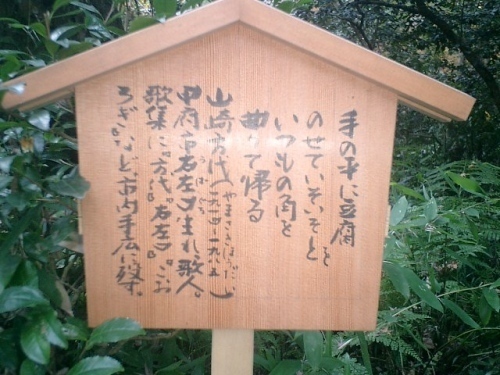 手の平に豆腐
のせていそいそと
いつもの角を
曲りて帰る
山崎方代(やまざきほうだい 一九一四-一九八五)
甲府市右左口(うばぐち)生れ、歌人。
歌集に「方代」「右左口」「こお
ろぎ」など。市内手広に没。